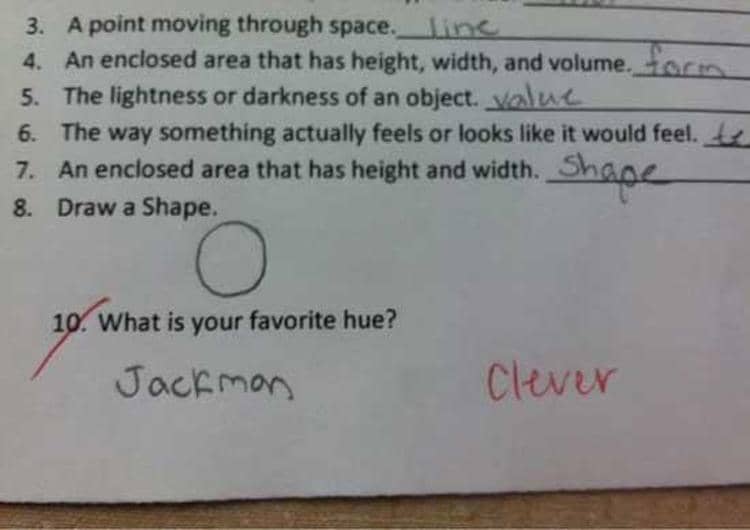 3. A point moving through space. line
4. An enclosed area that has height, width, and volume. form
5. The lightness or darkness of an object. value
6. The way something actually feels or looks like it would feel. te
7. An enclosed area that has height and width. Shape
8. Draw a Shape.
10. What is your favorite hue?
Jackman
Clever